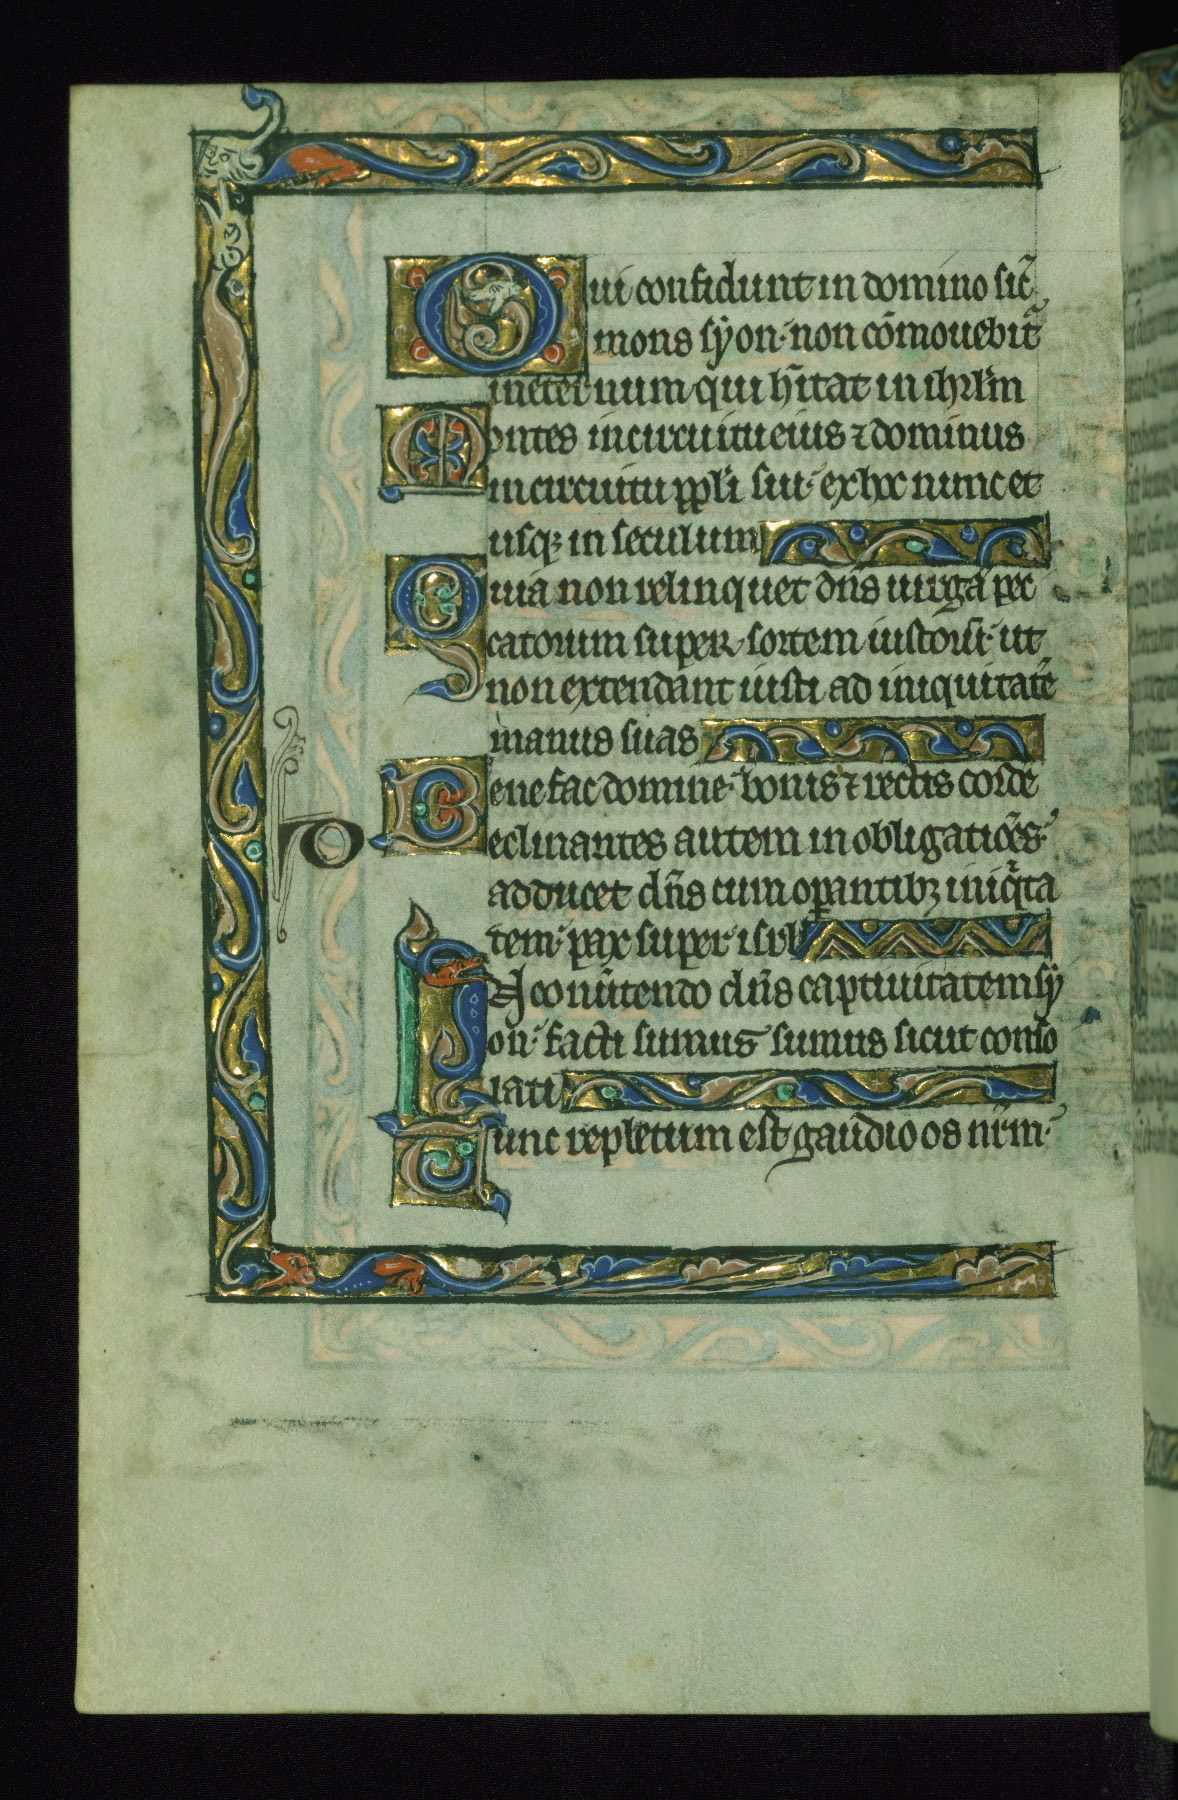 Qui confidunt in domino sic̄
mons sẏon· non cōmouebit᷑
in eternum qui h̄itat in ihrl̄m
Montes in circuitu eius ⁊ dominus
in circuitu pp̄li sui· ex hoc nunc et
usqꝫ in seculum
Quia non relinquet dn̄s uirgā pec
catorum super sortem iustoꝝ· ut
non extendant iusti ad iniquitatē
manus suas
Benefac domine· bonis ⁊ rectis corde
Declinantes autem in obligatiōes·
adducet dn̄s cum oꝑantibꝫ iniqͥta
tem· pax super isrl̄
In conūtendo dn̄s captiuitatem sẏ
on· facti sumus sumus sicut conso
lati
Tunc repletum est gaudio os nr̄m·